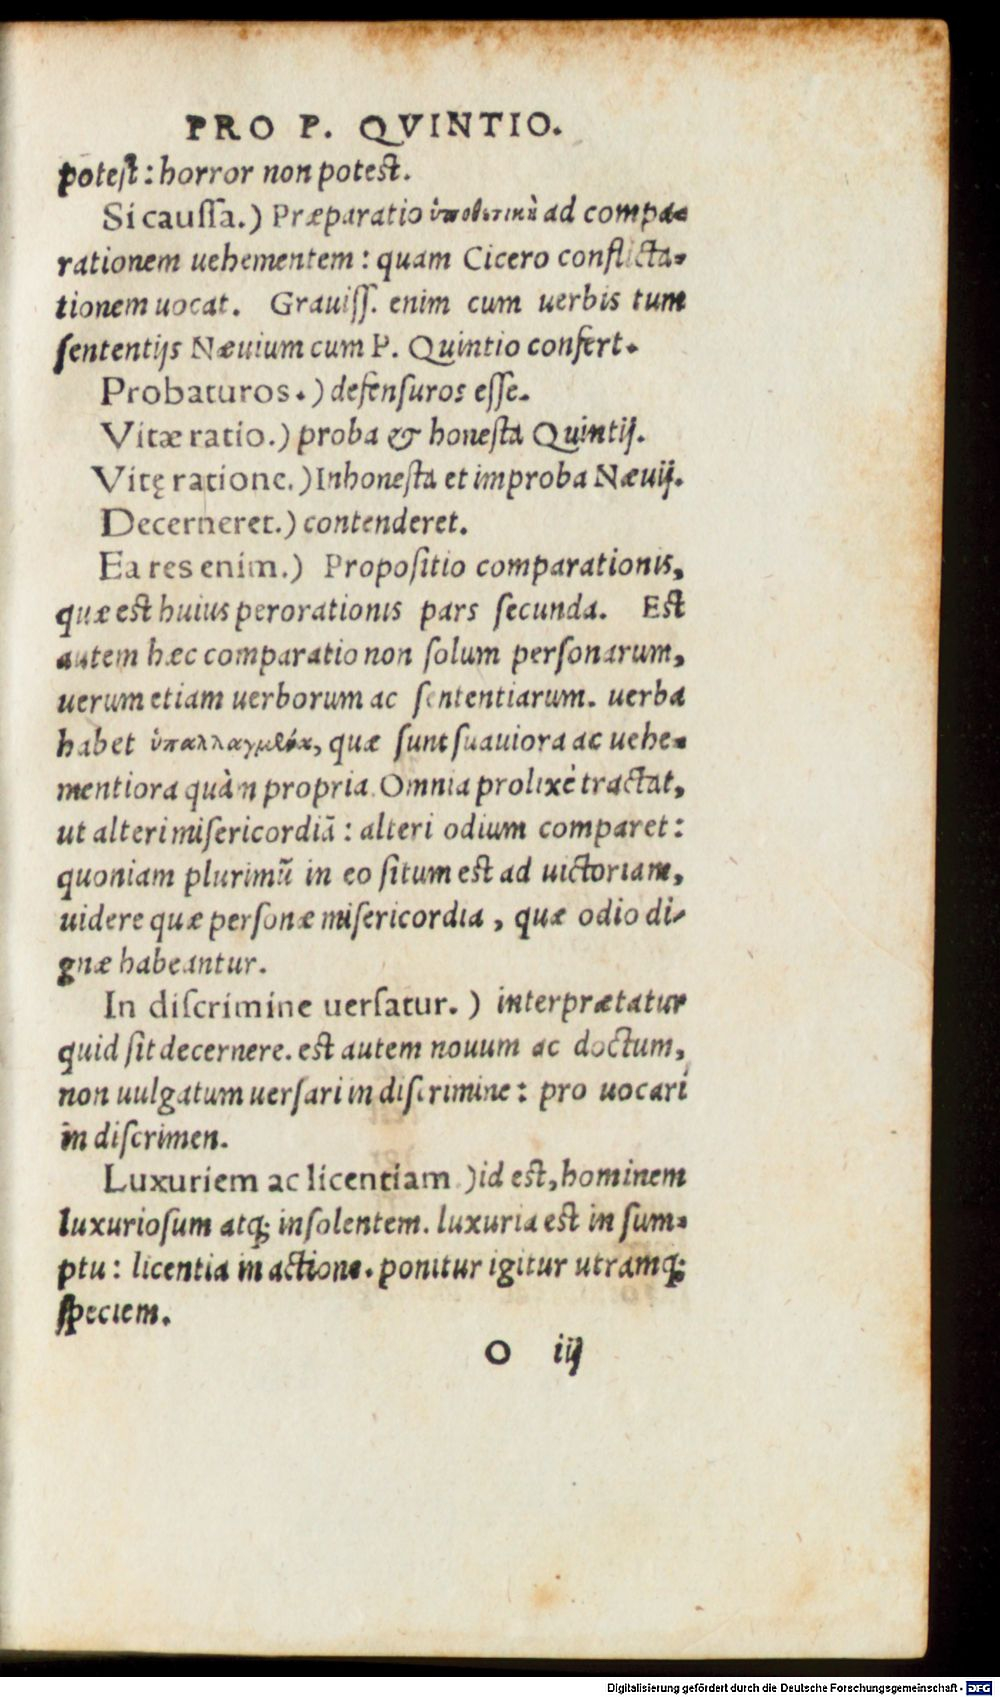 PRO P. QVINTIO.
poteſt: horror non poteſt.
Si cauſſa.) Præparatio ὑποθετικὴ ad compa-
rationem uehementem: quam Cicero conflicta-
tionem uocat. Grauiſſ. enim cum uerbis tum
ſententijs Næuium cum P. Quintio confert.
Probaturos.) defenſuros eſſe.
Vitæ ratio.) proba & honeſta Quintij.
Vitę ratione.) Inhoneſta et improba Næuij.
Decerneret.) contenderet.
Ea res enim.) Propoſitio comparationis,
quæ eſt huius perorationis pars ſecunda. Eſt
autem hæc comparatio non ſolum perſonarum,
uerum etiam uerborum ac ſententiarum. uerba
habet ὑπαλλαγμένα, quæ ſunt ſuauiora ac uehe-
mentiora quàm propria. Omnia prolixè tractat,
ut alteri miſericordiã: alteri odium comparet:
quoniam plurimũ in eo ſitum eſt ad uictoriam,
uidere quæ perſonæ miſericordia, quæ odio di-
gnæ habeantur.
In diſcrimine uerſatur.) interprætatur
quid ſit decernere. eſt autem nouum ac doctum,
non uulgatum uerſari in diſcrimine: pro uocari
in diſcrimen.
Luxuriem ac licentiam.) id eſt, hominem
luxurioſum atq; inſolentem. luxuria eſt in ſum-
ptu: licentia in actione. ponitur igitur utramq;
ſpeciem.
O iij
Digitalisierung gefördert durch die Deutsche Forschungsgemeinschaft - DFG